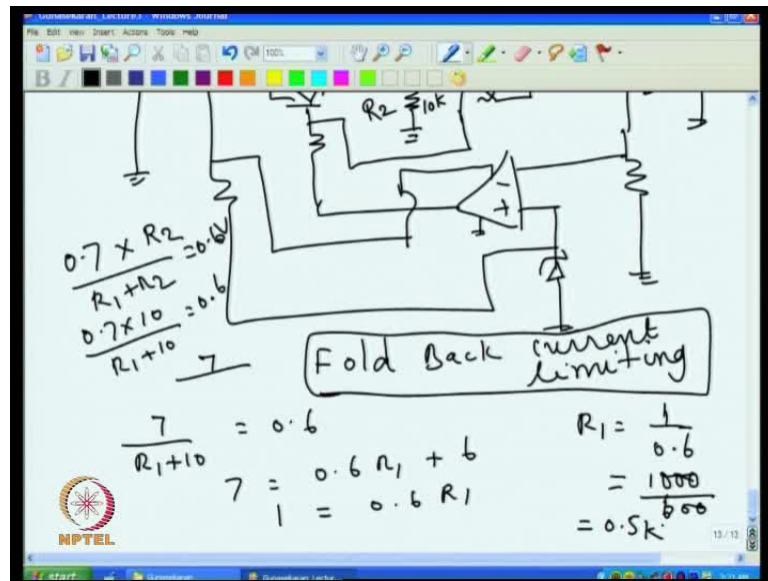 Gunasekaran_Lecture3 - Windows Journal
File Edit View Insert Actions Tools Help
100%
B I
R2 10k
-
+
0.7 × R2 / R1+R2 = 0.6V
0.7×10 / R1+10 = 0.6
7
Fold Back current limiting
7 / R1+10 = 0.6
7 = 0.6 R1 + 6
1 = 0.6 R1
R1 = 1 / 0.6
= 1000 / 600
= 0.5k.
NPTEL
13 / 13
start
Gunasekaran
Gunasekaran_Lectur...